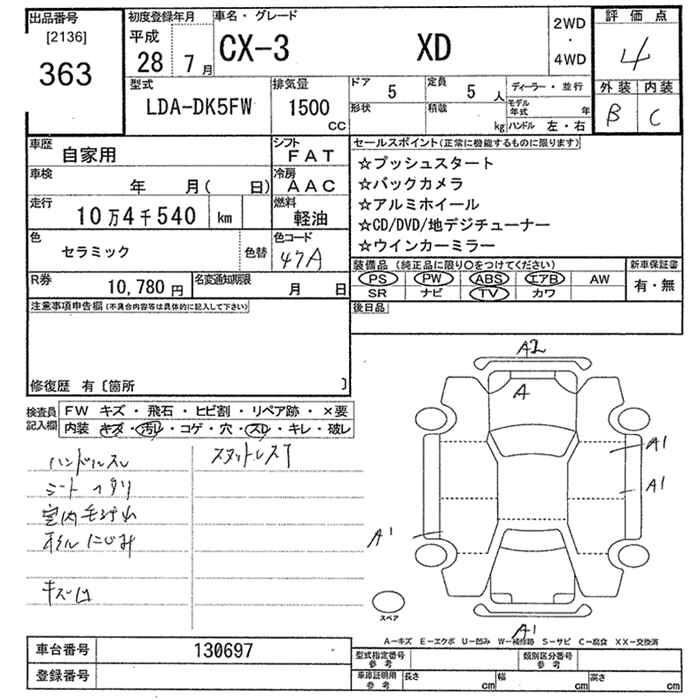 出品番号 [2136] 363
初度登録年月 平成 28 7月
車名・グレード CX-3 XD
2WD・4WD
評価点 4
外装 内装
B C
型式 LDA-DK5FW
排気量 1500 CC
ドア 5 定員 5人
形状 積載 kg
ディーラー・並行
モデル年式 年
ハンドル 左・右
車歴 自家用
シフト FAT
車検 年 月( 日)
冷房 AAC
走行 10万4千540 km
燃料 軽油
色 セラミック 色替
色コード 47A
R券 10,780円
名変通知期限 月 日
セールスポイント(正常に機能するものに限ります)
☆プッシュスタート
☆バックカメラ
☆アルミホイール
☆CD/DVD/地デジチューナー
☆ウインカーミラー
装備品(純正品に限り○をつけてください)
新車保証書
PS PW ABS エアB AW
有・無
SR ナビ TV カワ
後日品
注意事項申告欄(不具合内容等は具体的に記入して下さい)
修復歴 有〔箇所 〕
検査員記入欄
FW キズ・飛石・ヒビ割・リペア跡・×要
内装 キズ・汚レ・コゲ・穴・スレ・キレ・破レ
ハンドルスレ
スタットレスT
シート ヘタリ
オイルにじみ
キズ凹
A2
A
A1
A1
A1
A1
スペア
A-キズ E-エクボ U-凹み W-補修跡 S-サビ C-腐食 XX-交換済
車台番号 130697
登録番号
型式指定番号 参考
類別区分番号 参考
車庫証明用 参考
長さ cm 幅 cm 高さ cm